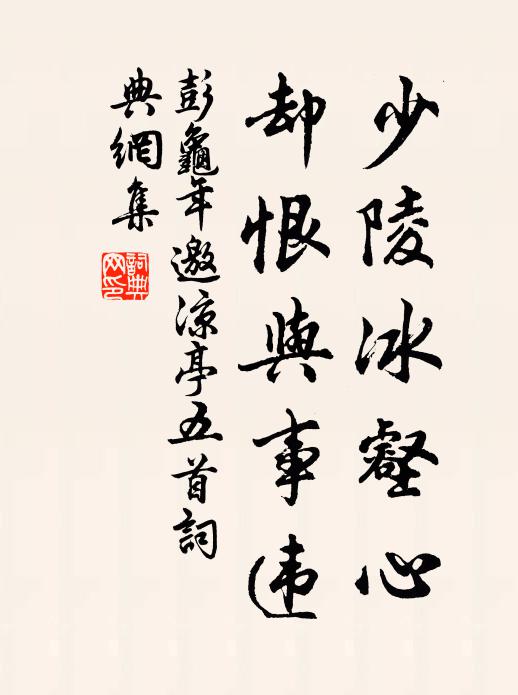 少陵冰壑心
却恨與事违
彭龜年邀凉亭五首詞
典網集
詞典
网印